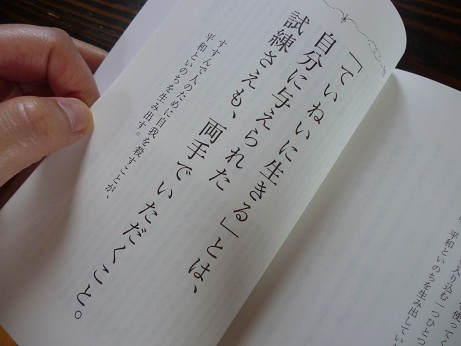 「ていねいに生きる」とは、
自分に与えられた
試練さえも、両手でいただくこと。
すすんで人のために自我を殺すことが、
平和といのちを生み出す。
入り込む一つひとつ
平和といのちを生み出してい